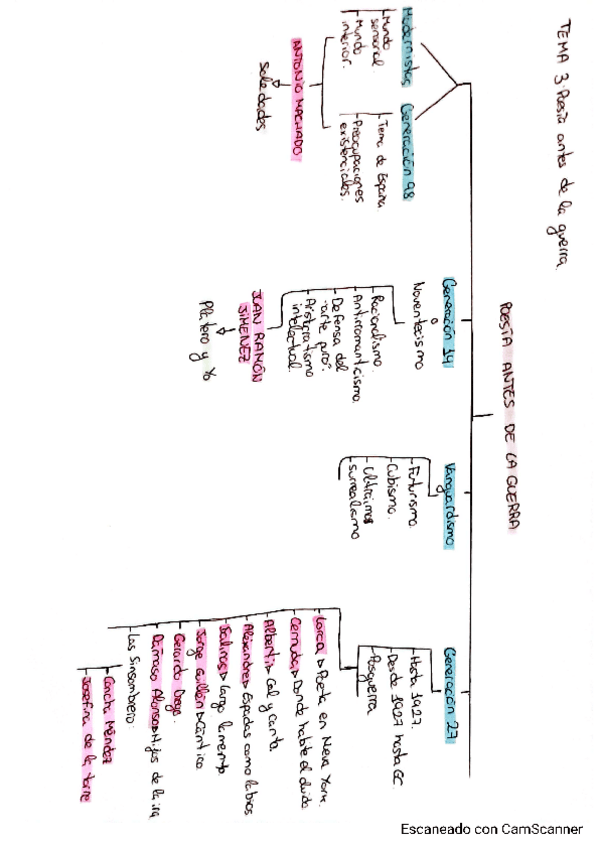 TEMA 3: Poesía antes de la guerra.
POESÍA ANTES DE LA GUERRA
Modernistas
Mundo
sensorial.
Mundo
interior.
Generación 98
Tema de España
Preocupaciones
existenciales.
ANTONIO MACHADO
Soledades
Generación 14
o
Noventecismo
Racionalismo.
Antirromanticismo.
Defensa del
"arte puro".
Aristocratismo
intelectual.
JUAN RAMÓN
JIMENEZ
Platero y Yo
Vanguardismo
Futurismo.
Cubismo.
Ultraísmo
Surrealismo
Generación 27
Hasta 1927.
Desde 1927 hasta GC.
Posguerra
Lorca Poeta en Neva York.
Cernuda Donde habite el olvido.
Alberti Cal y canto.
Aleixandre Espadas como labios
Salinas Largo lamento
Jorge Guillén Cántico.
Gerardo Diego.
Dámaso Alonso Hijos de la ira
Las Sinsombrero:
Concha Méndez
Josefina de la torre
Escaneado con CamScanner